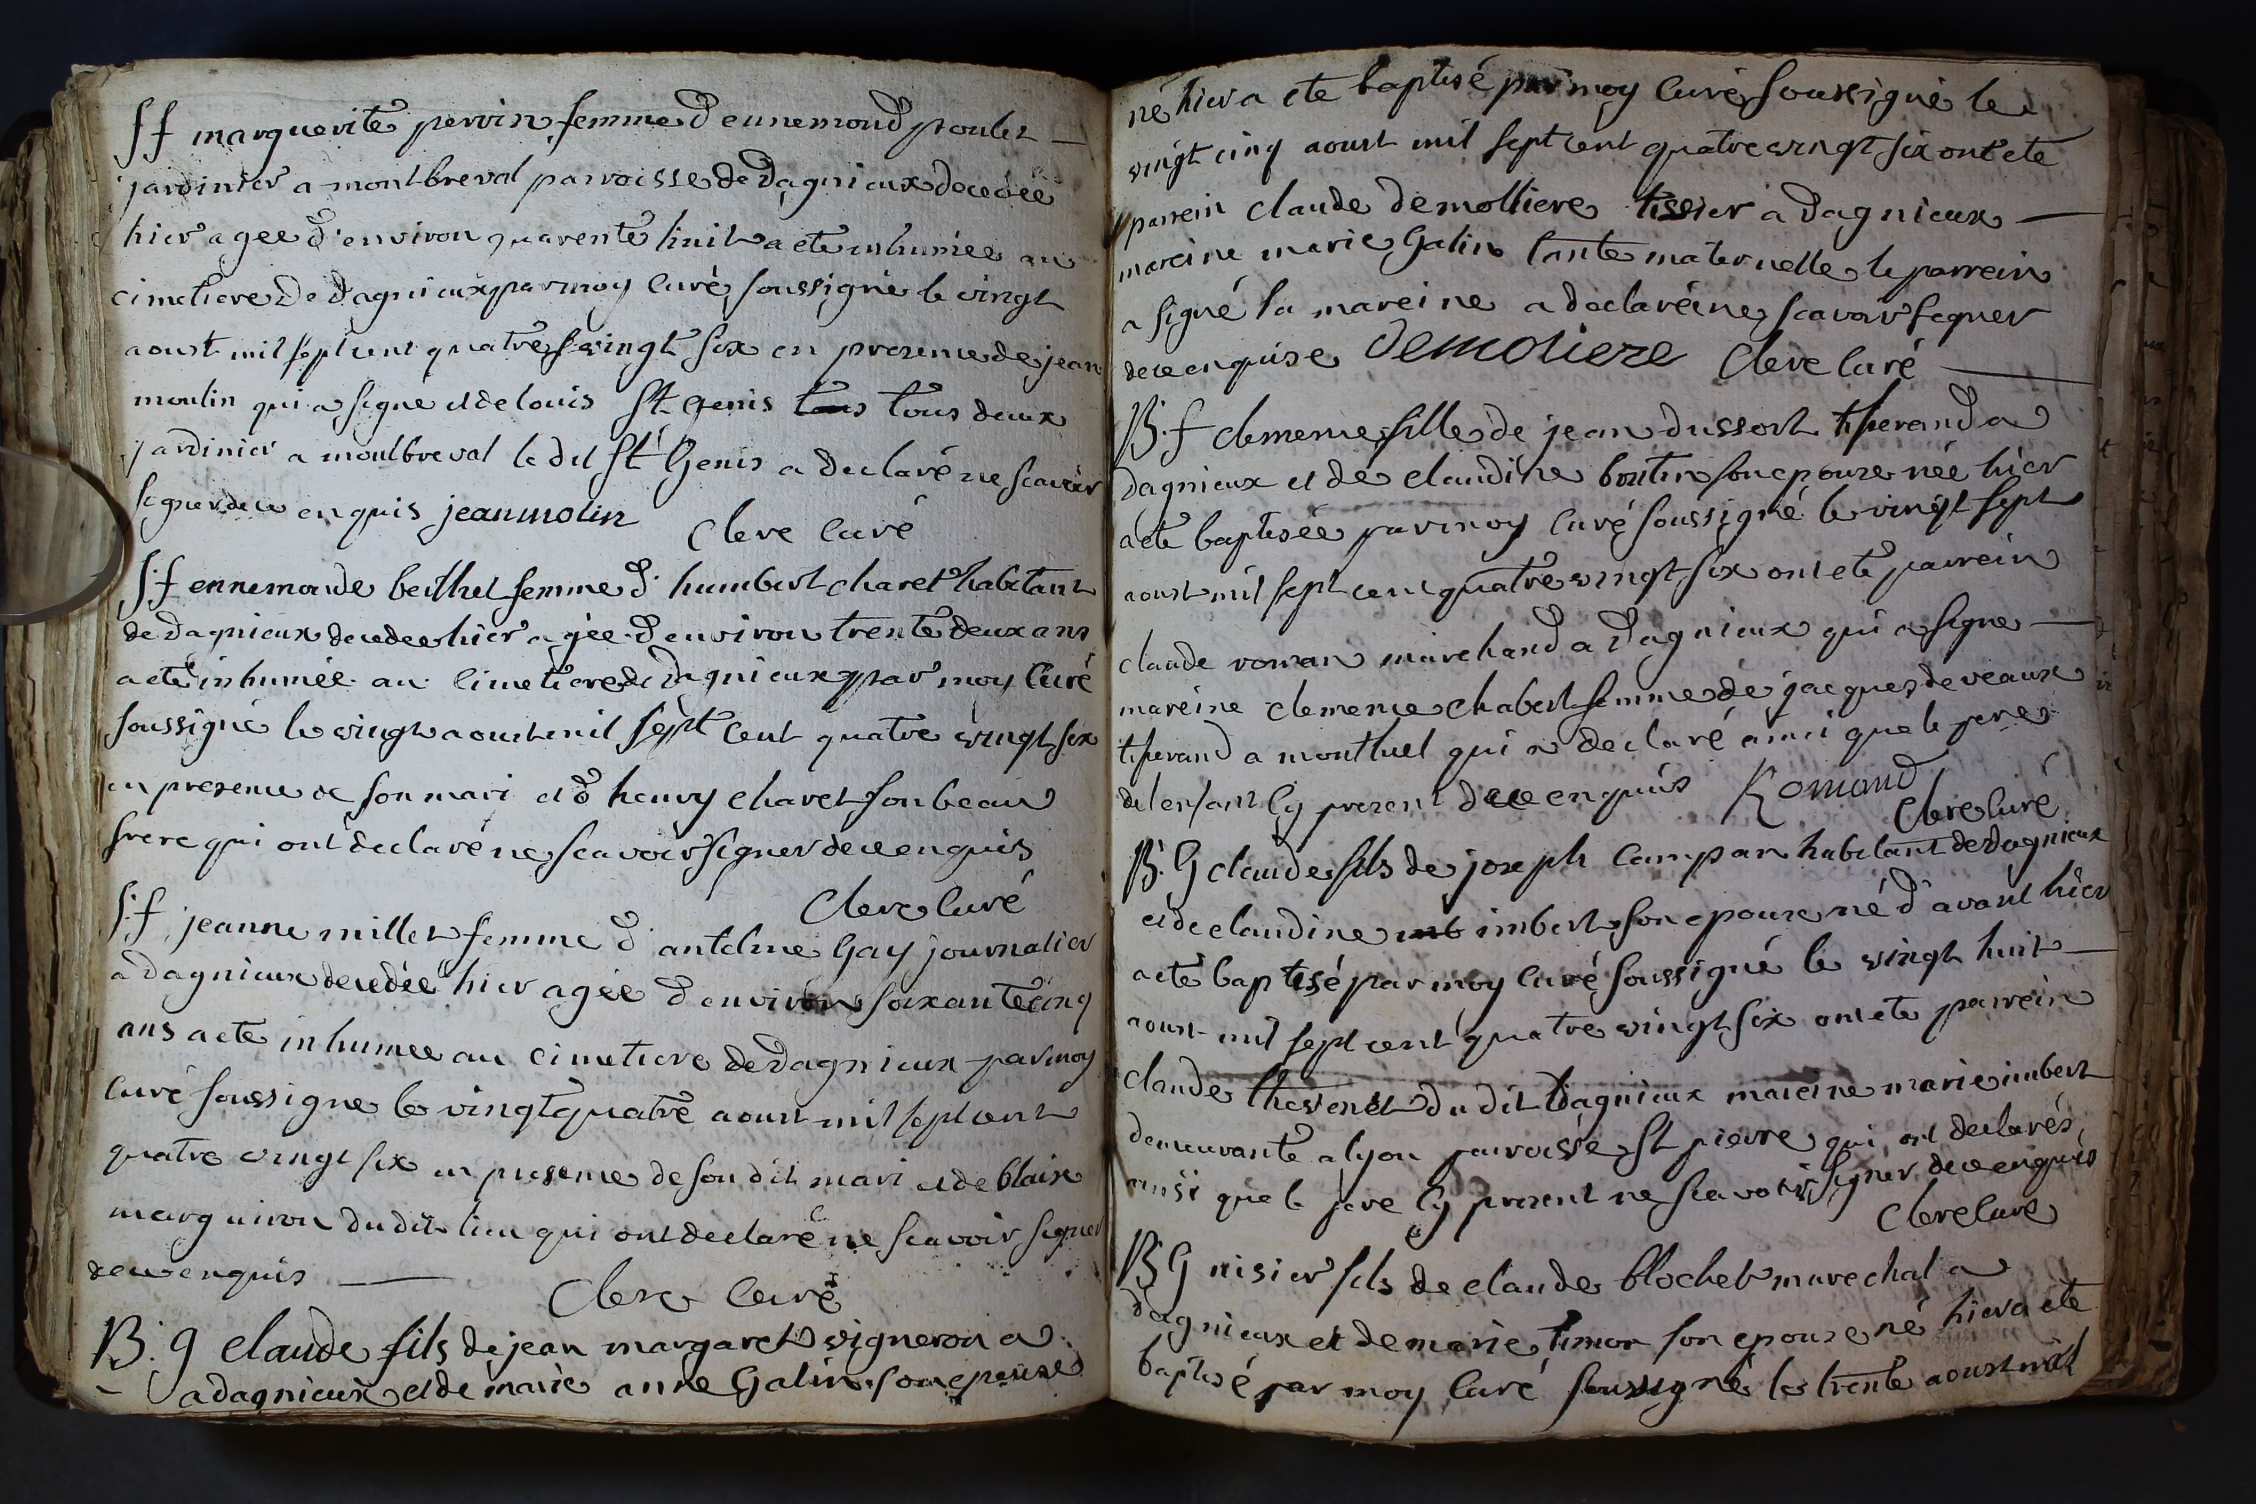 S f marguerite perrin femme d ennemond poulet —
jardinier a montbreval parroisse de dagnieux decedée
hier agee d'environ quarente huit a ete inhumée au
cimetiere de dagnieux par moy curé soussigné le vingt
aoust mil sept cent quatre vingt six en presence de jean
moulin qui a signe et de louis St genis tous tous deux
jardinier a montbreval le dit St Genis a declaré ne scavoir
signer de ce enquis jean molin
Clere curé
S. f ennemonde berthet femme d' humbert charet habitant
de dagnieux decedee hier agée d environ trente deux ans
a eté inhumée au cimetiere de dagnieux par moy curé
soussigné le vingt aoust mil sept cent quatre vingt six
en presence de son mari et d' henry charet son beau
frere qui ont declaré ne scavoir signer de ce enquis
Clere curé
S. f jeanne millet femme d' antelme Gay journalier
a dagnieux decedée hier agée d environ soixante cinq
ans a ete inhumee au cimetiere de dagnieux par moy
curé soussigne le vingt quatre aoust mil sept cent
quatre vingt six en presence de son dit mari et de blaise
marguiron dudit lieu qui ont declaré ne scavoir signer
de ce enquis —
Clere curé
B. g claude fils de jean margaret vigneron a
a dagnieux et de marie anne Galin son epouse
né hier a ete baptisé par moy curé soussigné le
vingt cinq aoust mil sept cent quatre vingt six ont ete
parrein claude demolliere tissier a dagnieux —
mareine marie Galin tante maternelle le parrein
a signé la mareine a declaré ne scavoir signer
de ce enquise demoliere Clere curé —
B. f clemence fille de jean dussort tisserand a
dagnieux et de claudine boutin son epouse née hier
a eté baptisée par moy curé soussigné le vingt sept
aoust mil sept cent quatre vingt six ont eté parrein
claude roman marchand a dagnieux qui a signe —
mareine clemence chabert femme de jacques deveaux
tisserand a montluel qui a declaré ainsi que le pere
de l enfant cy present de ce enquis Romand
Clere curé
B. G claude fils de joseph campan habitant de dagnieux
et de claudine imb imbert son epouse né d'avant hier
a eté baptisé par moy curé soussigné le vingt huit —
aoust mil sept cent quatre vingt six ont ete parrein
claude thevenet du dit dagnieux mareine marie imbert
demeurante a lyon parroisse St pierre qui ont declarés
ainsi que le pere cy present ne scavoir signer de ce enquis
Clere curé
B G nisier fils de claude blochet marechal a
dagnieux et de marie timon son epouse né hier a ete
baptisé par moy curé soussigné le trente aoust mil